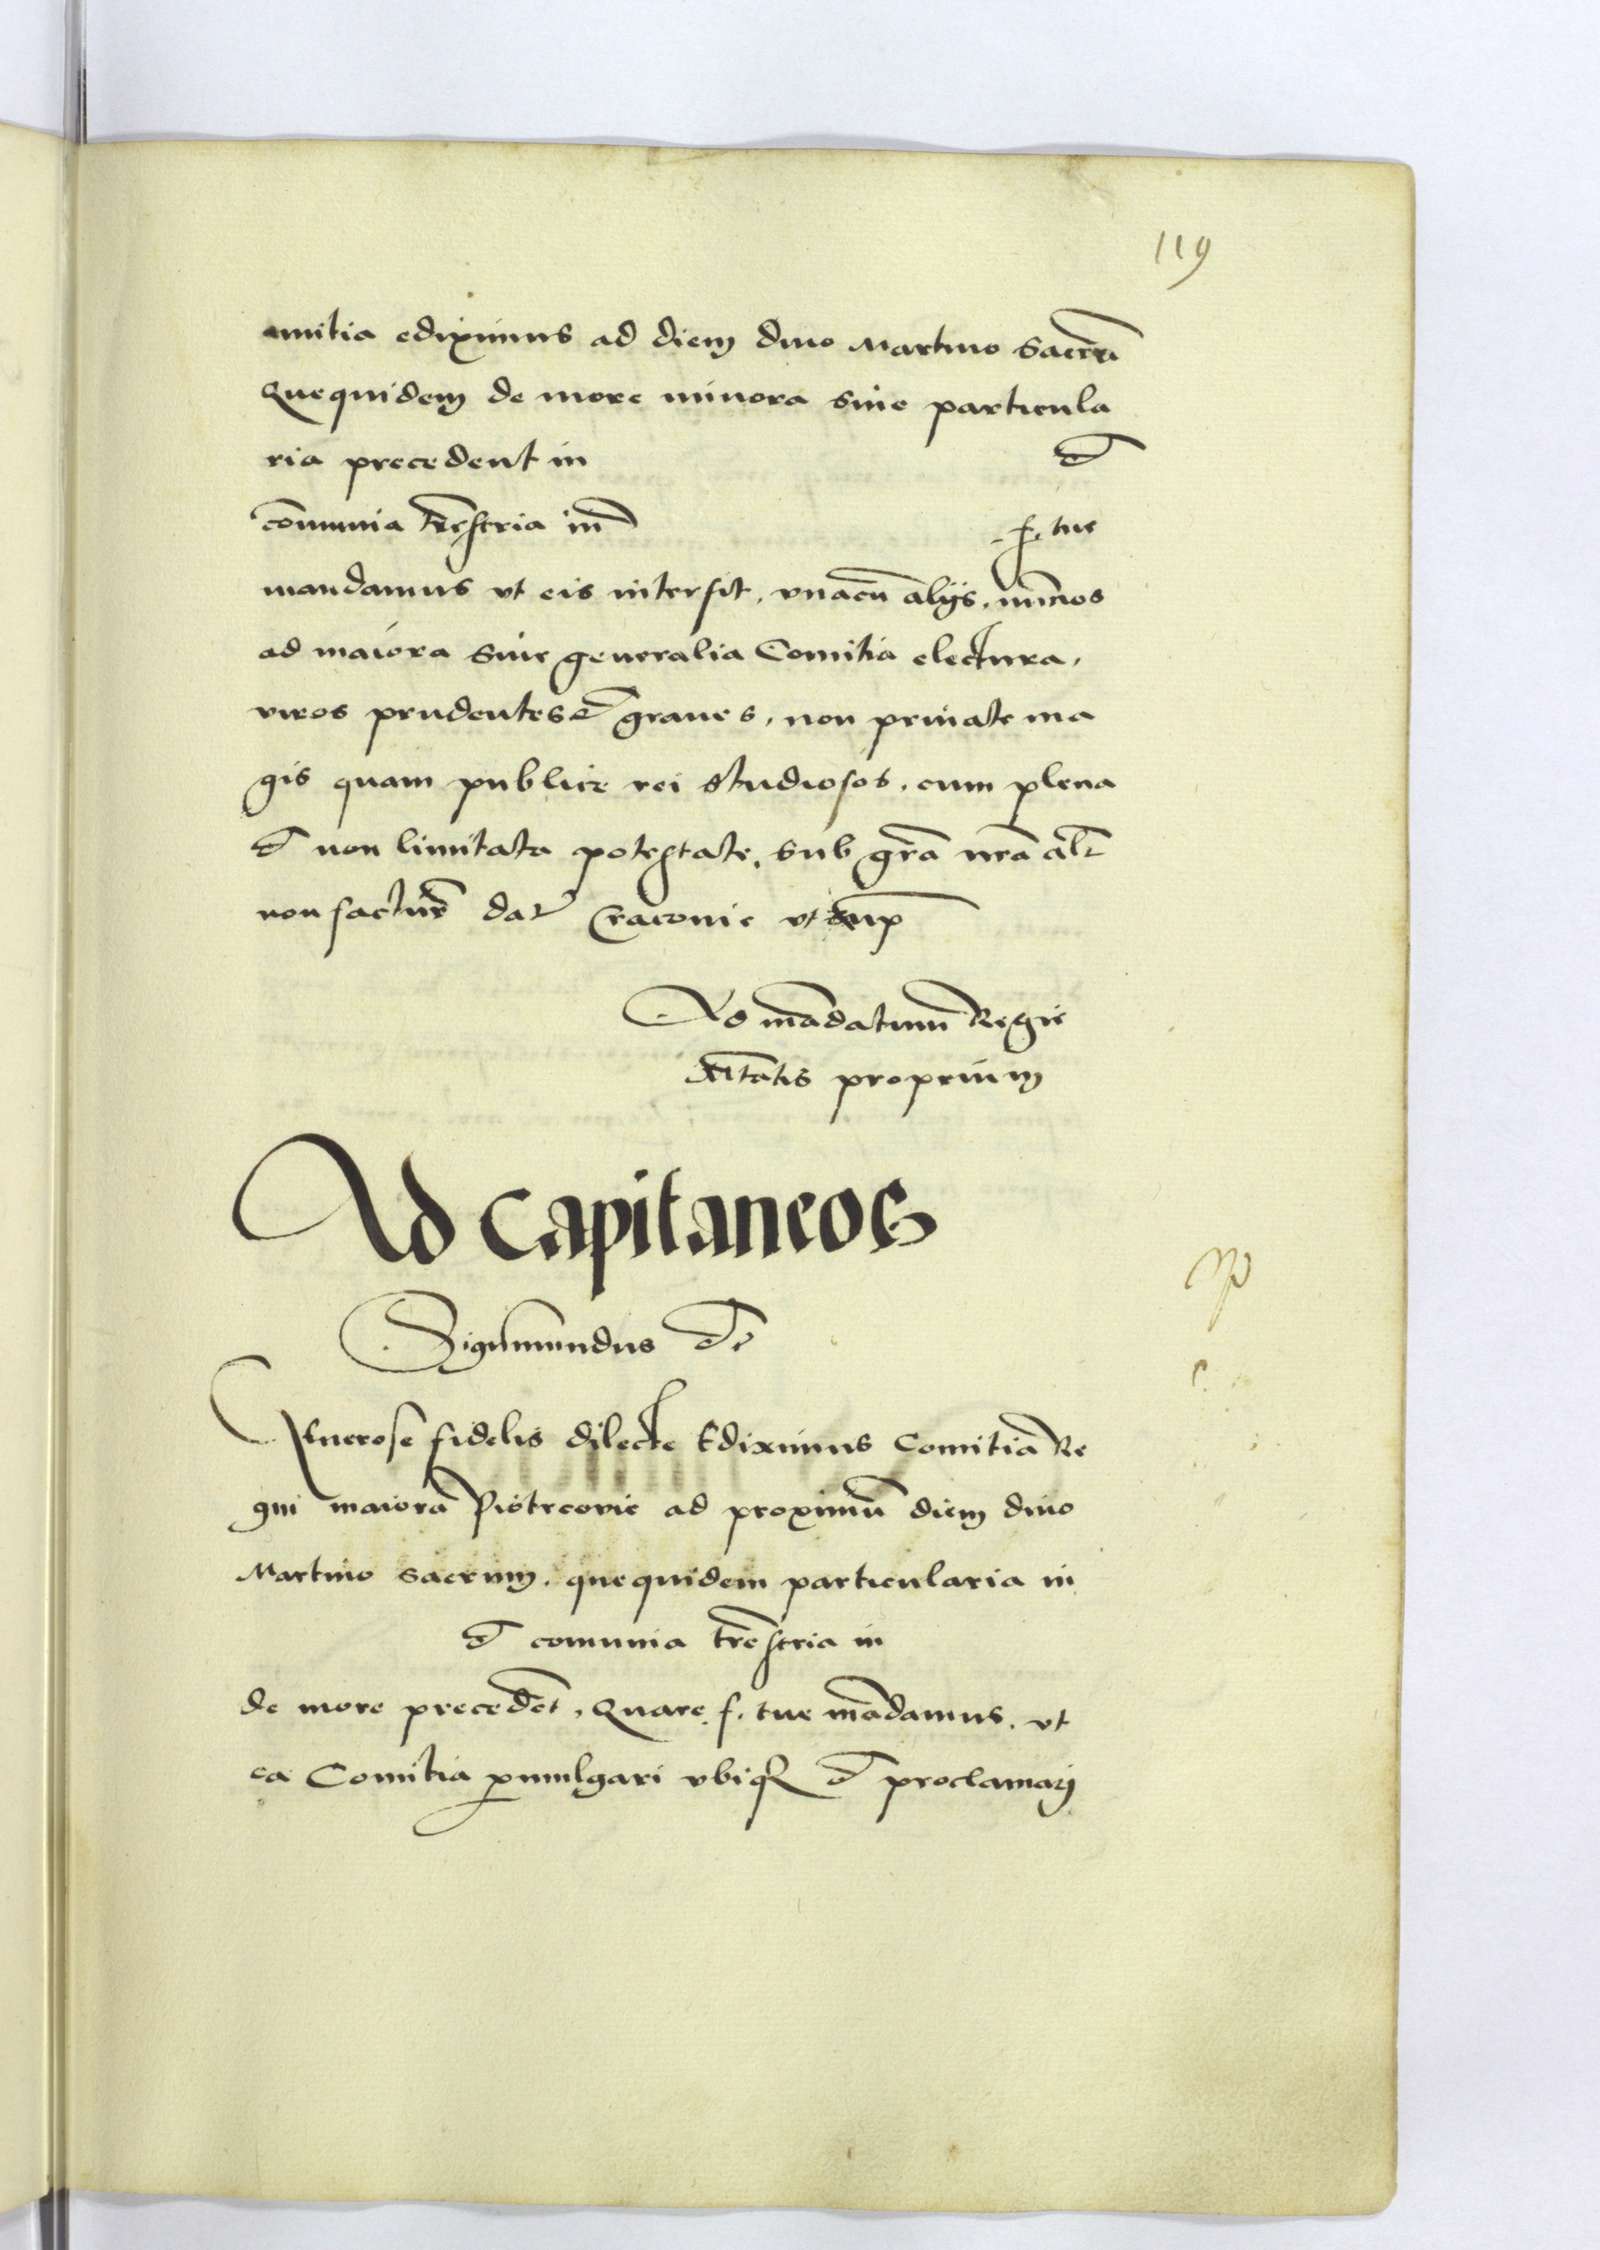 119
omitia ediximus ad diem diuo Martino sacrũ
Quequidem de more minora siue particula
ria precedent in &
cõmunia terrestria in
f. tue
mandamus vt eis intersit, vnacũ alijs, nũcios
ad maiora siue generalia Comitia electura,
viros prudentes & graues, non priuate ma
gis quam publice rei studiosos, cum plena
& non limitata potestate, sub grã nrã alr
non factur̃ dat Cracouie vt sup
Ad mãdatum Regie
Mtatis proprium
Ad Capitaneos
Sigismundus &
Generose fidelis dilecte Ediximus Comitia Re
gni maiora Piotrcovie ad proximũ diem diuo
Martino sacrum, quequidem particularia in
& comunia trẽstria in
de more precedẽt, Quare f. tue mãdamus, vt
ea Comitia promulgari vbiq & proclamarj